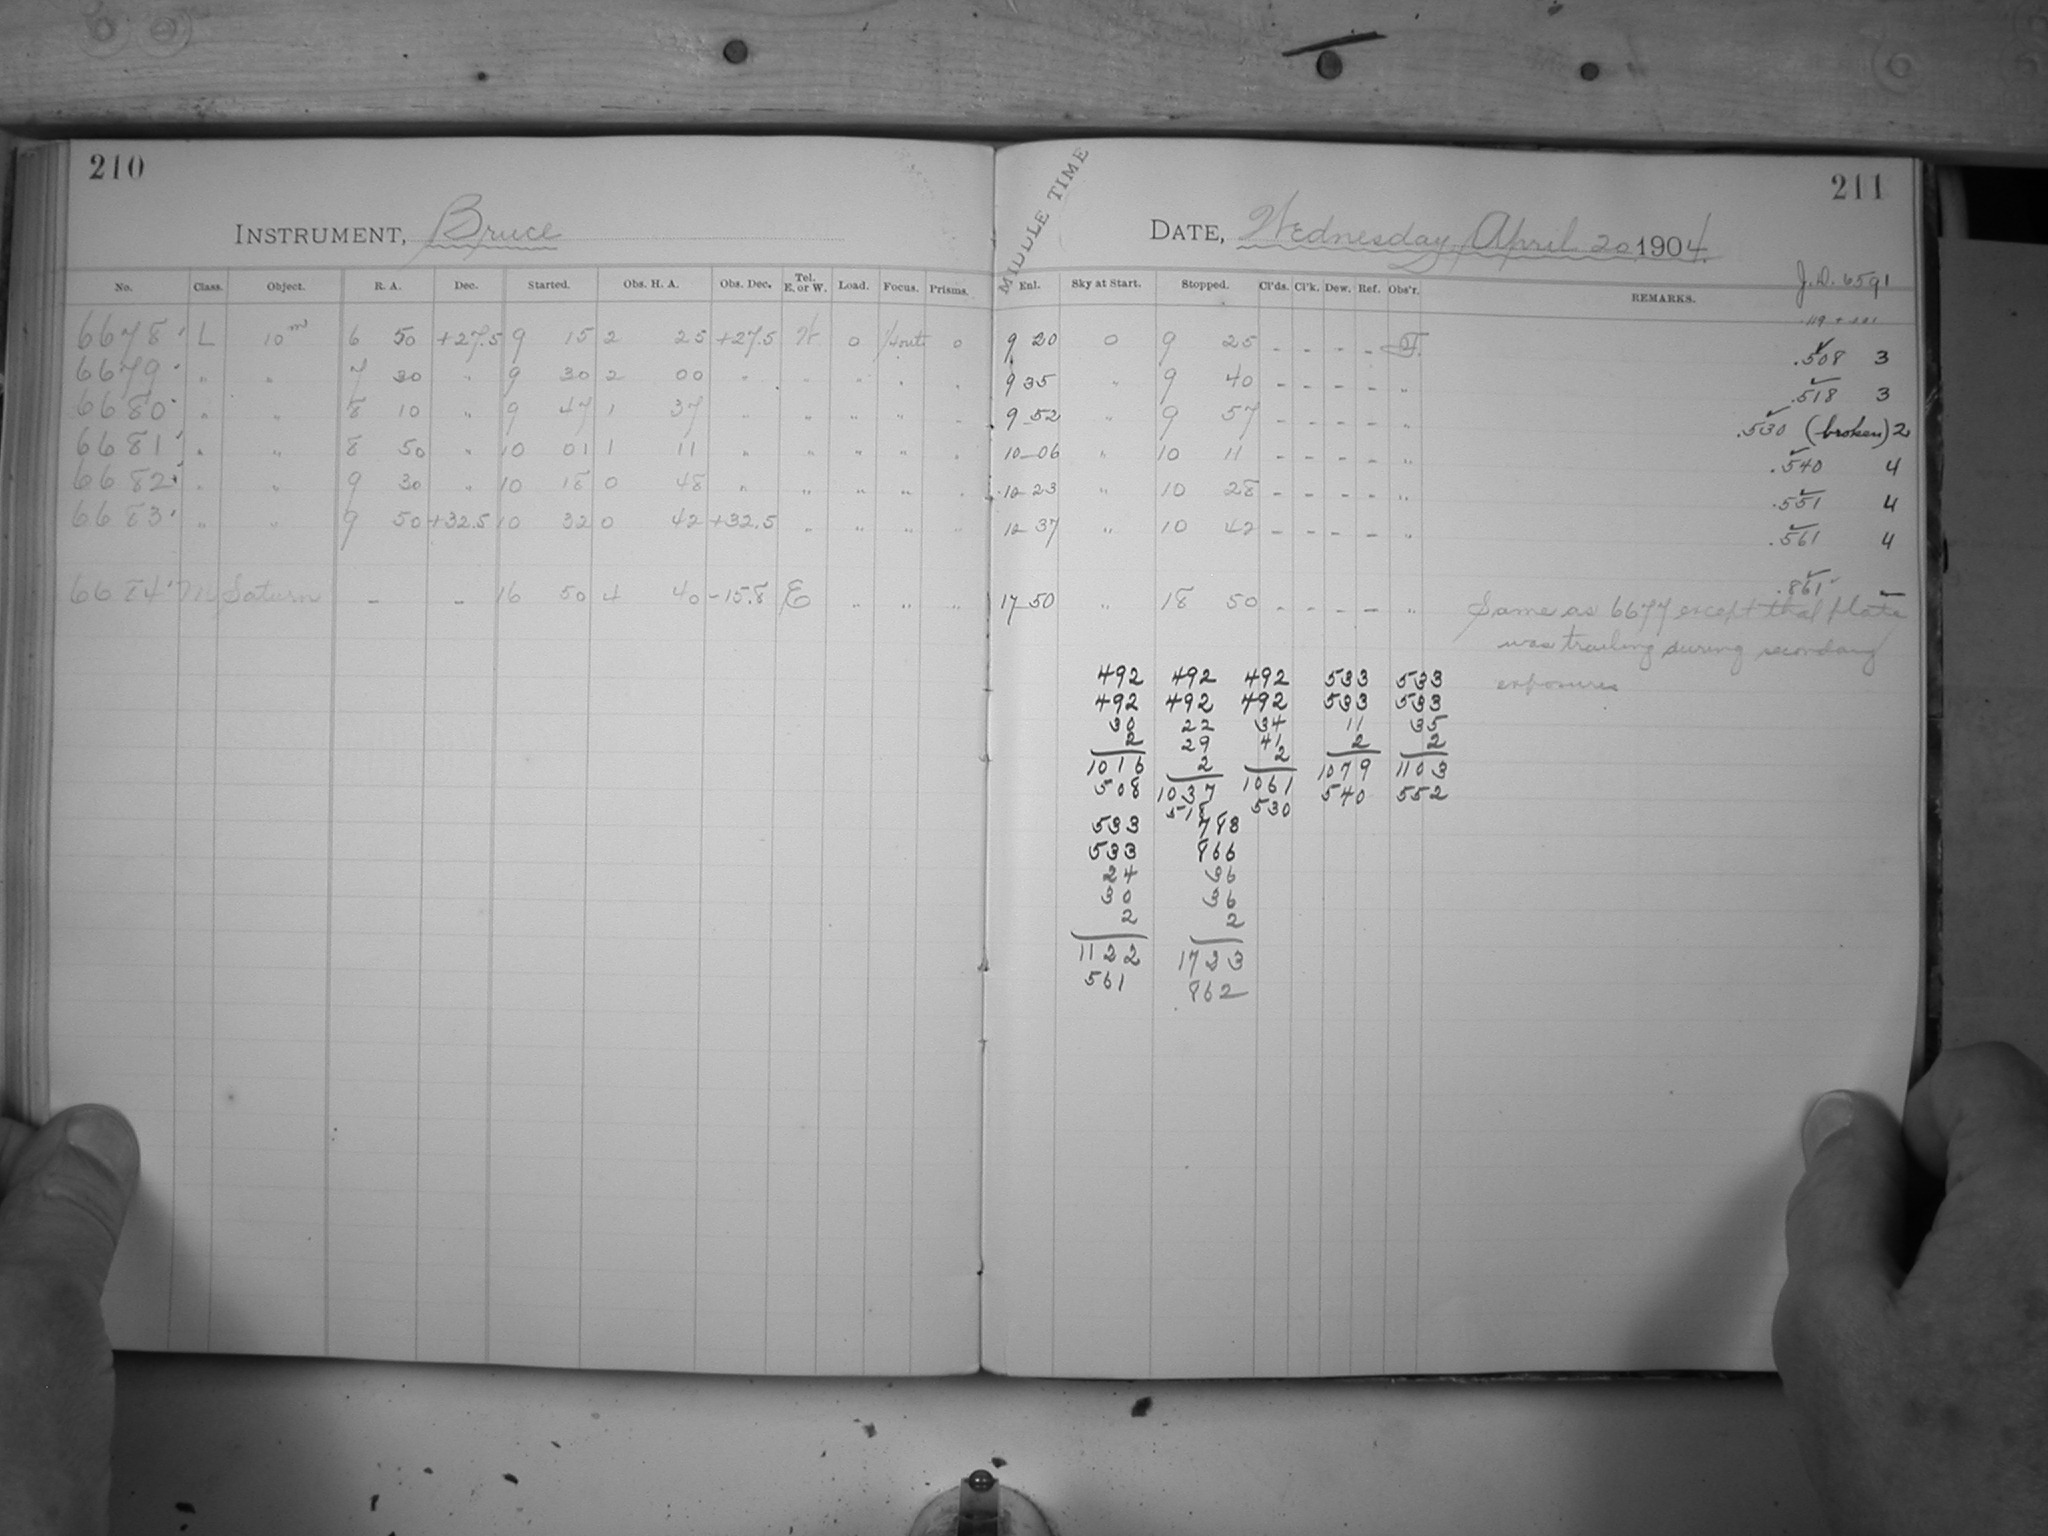 210
INSTRUMENT, Bruce
No. Class. Object. R. A. Dec. Started. Obs. H. A. Obs. Dec. Tel. E. or W. Load. Focus. Prisms.
6678 L 10m 6 50 +27.5 9 15 2 25 +27.5 W 0 0
6679 " " 7 30 " 9 30 2 00 " " " " "
6680 " " 8 10 " 9 47 1 37 " " " " "
6681 " " 8 50 " 10 01 1 11 " " " " "
6682 " " 9 30 " 10 18 0 48 " " " " "
6683 " " 9 50 +32.5 10 32 0 42 +32.5 " " " "
6684 M Saturn - - 16 50 4 40 -15.8 E " " "
211
MIDDLE TIME
DATE, Wednesday, April 20 1904.
J.D. 6591
Enl. Sky at Start. Stopped. Cl'ds. Cl'k. Dew. Ref. Obs'r. REMARKS.
9 20 0 9 25 - - - - .508 3
9 35 " 9 40 - - - - " .518 3
9 52 " 9 57 - - - - " .530 (broken) 2
10 06 " 10 11 - - - - " .540 4
10 23 " 10 28 - - - - " .551 4
10 37 " 10 42 - - - - " .561 4
.861 -
17 50 " 18 50 - - - - " Same as 6677 except that plate
was trailing during secondary
exposures
492 492 492 533 533
492 492 492 533 533
30 22 34 11 35
2 29 41 2 2
1016 2 2 1079 1103
508 1037 1061 540 552
518 530
533 788
533 866
24 36
30 36
2 2
1122 1723
561 862